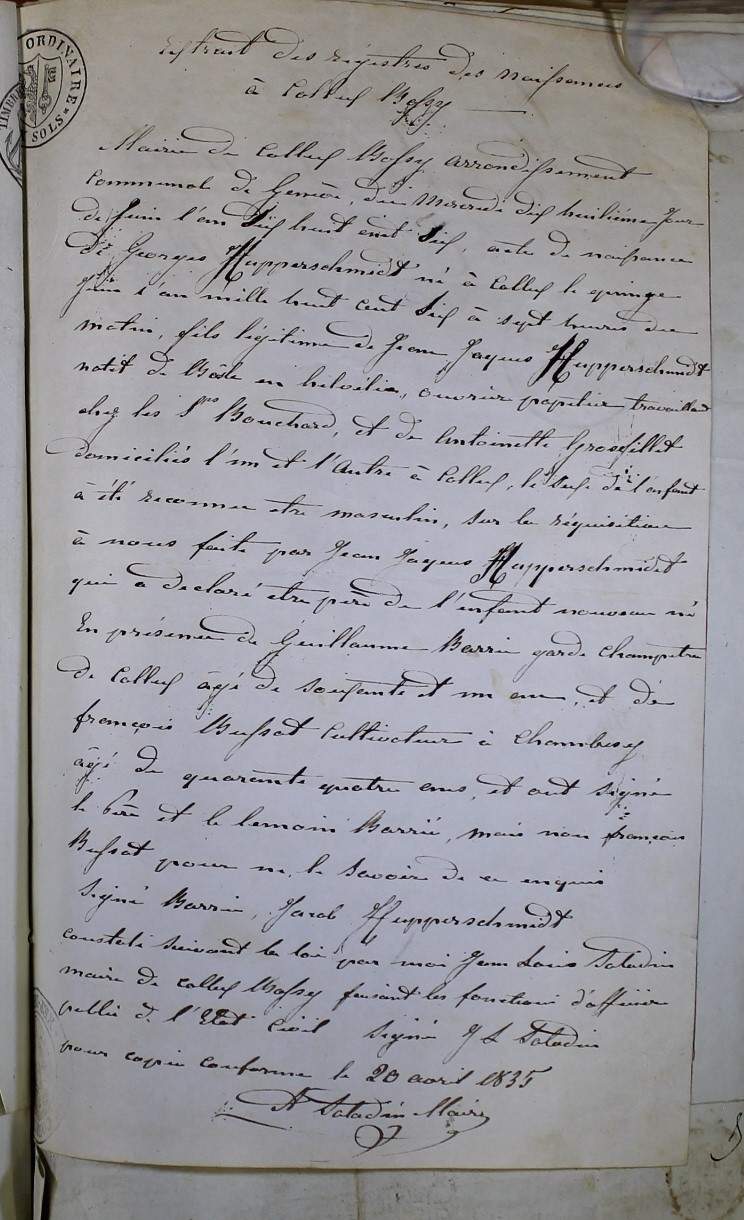 ORDINAIRE
TIMBRE
SOLS
Extrait des régistres des naissances
à Collex Bossy
Mairie de Collex Bossy arrondissement
Communal de Genève, du Mercredi dix huitième jour
de Juin l'an dix huit cent dix, acte de naissance
de Georges Hupperschmidt né à Collex le quinze
Juin l'an mille huit cent dix à sept heures du
matin, fils légitime de Jean Jaques Hupperschmidt
natif de Bâle en helvétie, ouvrier papetier travaillant
chez les Srs Bouchard, et de Antoinette Grosfillet
domiciliés l'un et l'autre à Collex, le sexe de l'enfant
à été reconnu etre masculin, sur la réquisition
à nous faite par Jean Jaques Hupperschmidt
qui a declaré etre père de l'enfant nouveau né
En présence de Guillaume Barrié garde champetre
de Collex âgé de soixante et un ans, et de
françois Bussat Cultivateur à Chambesy
âgé de quarante quatre ans, et ont signé
le père et le temoin Barrié, mais non françois
Bussat pour ne le savoir de ce enquis
Signé Barrié, Jacob Hupperschmidt
constaté suivant la loi par moi Jean Louis Saladin
maire de Collex Bossy faisant les fonctions d'officier
public de l'Etat Civil signé J L Saladin
pour copie conforme le 20 avril 1835
A Saladin Maire